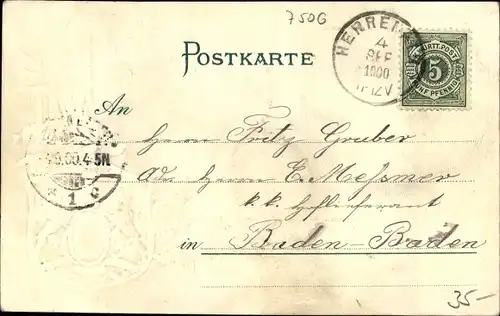 7506
POSTKARTE
HERREN
4
SEP
1900
K. WÜRTT. POST
5
FÜNF PFENNIG
An
Herrn Fritz Gruber
Adr Herrn E. Messmer
k. k. Hoflieferant
in Baden-Baden
4.9.00.4-5N
* 1 c
35-